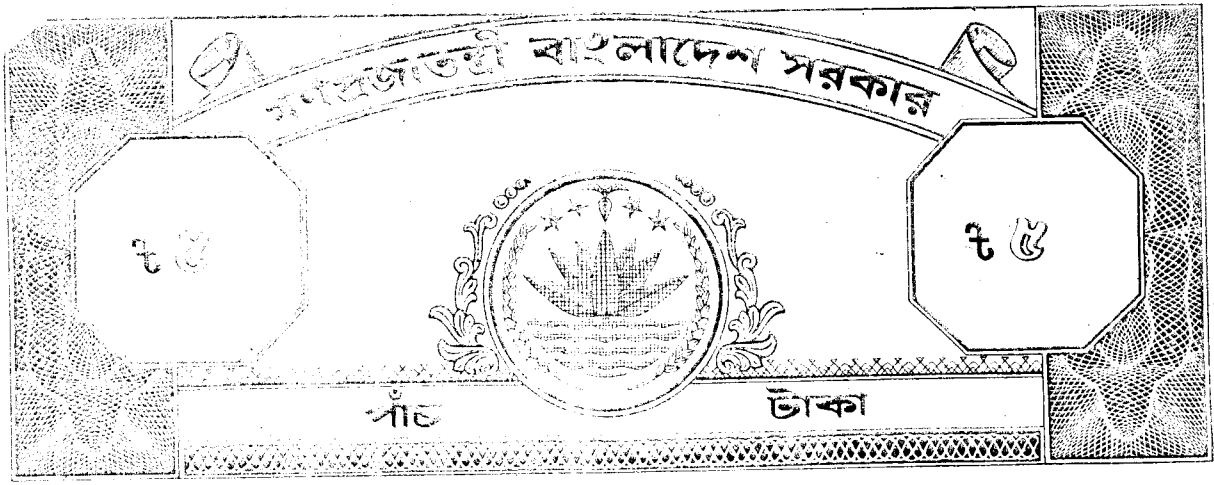 গণপ্রজাতন্ত্রী বাংলাদেশ সরকার
৳ ৫
৳ ৫
পাঁচ টাকা